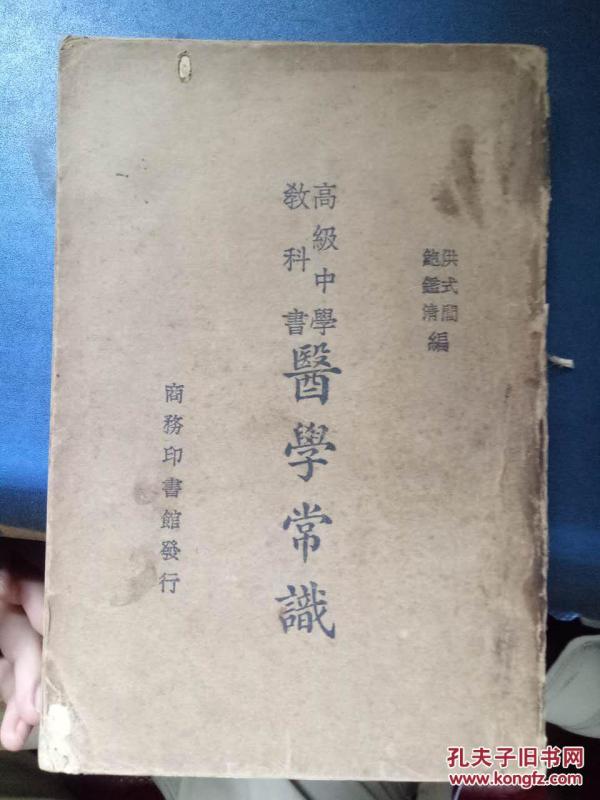 洪式閭
鮑鑑清
編
高級中學
教科書
醫學常識
商務印書館發行
孔夫子旧书网
www.kongfz.com